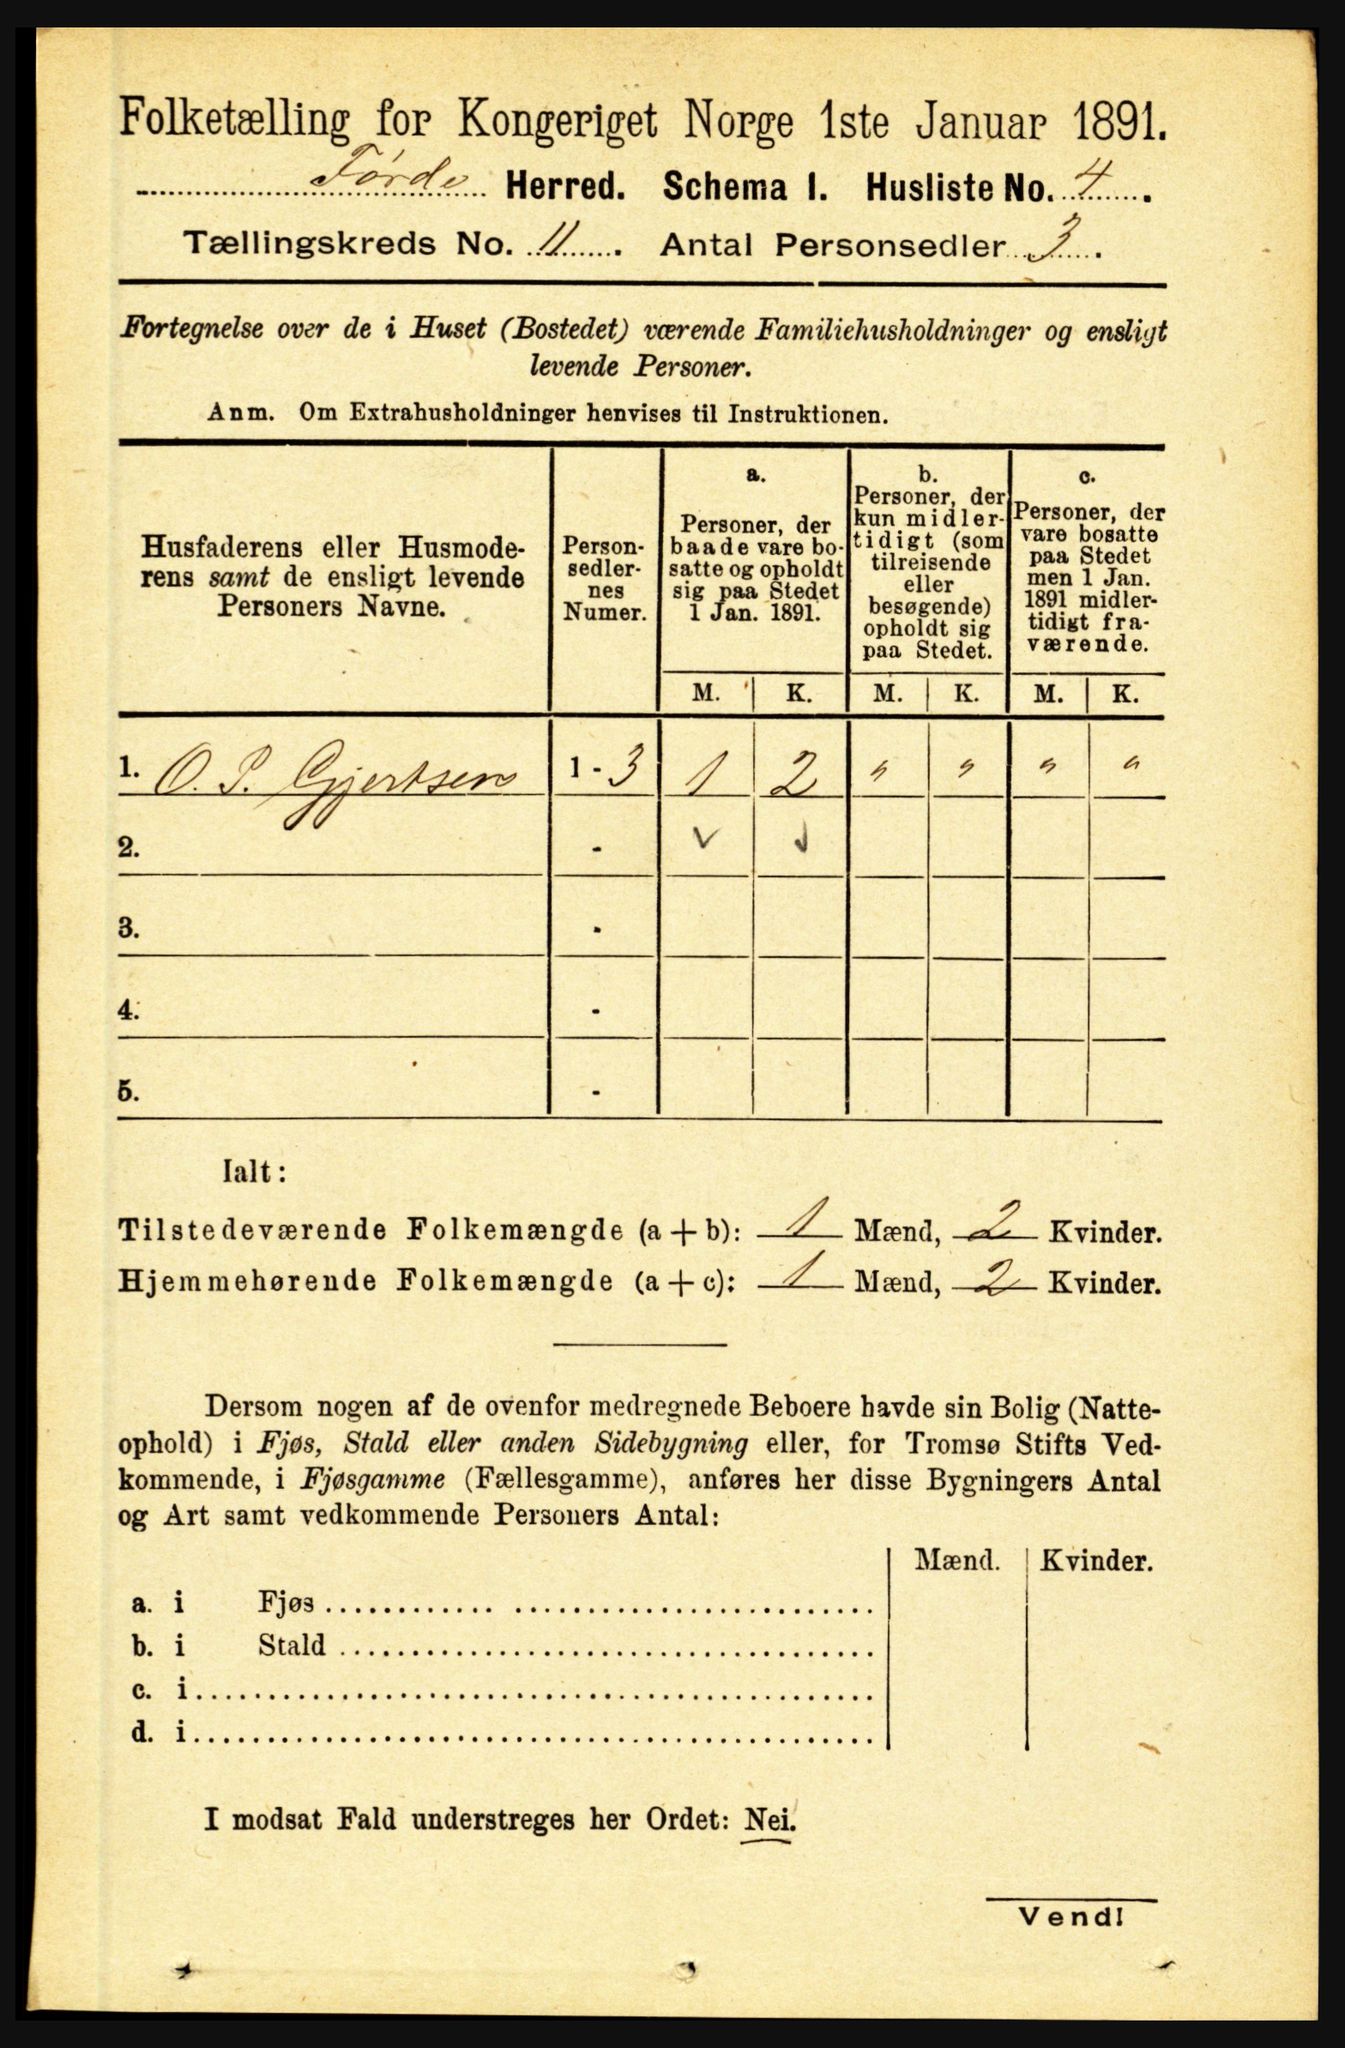 Folketælling for Kongeriget Norge 1ste Januar 1891.
Førde Herred. Schema I. Husliste No. 4.
Tællingskreds No. 11. Antal Personsedler 3.
Fortegnelse over de i Huset (Bostedet) værende Familiehusholdninger og ensligt
levende Personer.
Anm. Om Extrahusholdninger henvises til Instruktionen.
Husfaderens eller Husmode-
rens samt de ensligt levende
Personers Navne.
Person-
sedler-
nes
Numer.
a.
Personer, der
baade vare bo-
satte og opholdt
sig paa Stedet
1 Jan. 1891.
b.
Personer, der
kun midler-
tidigt (som
tilreisende
eller
besøgende)
opholdt sig
paa Stedet.
c.
Personer, der
vare bosatte
paa Stedet
men 1 Jan.
1891 midler-
tidigt fra-
værende.
M. K. M. K. M. K.
1. O. P. Gjertsen 1 - 3 1 2 " " " "
2. - ✓ ✓
3. -
4. -
5. -
Ialt:
Tilstedeværende Folkemængde (a + b): 1 Mænd, 2 Kvinder.
Hjemmehørende Folkemængde (a + c): 1 Mænd, 2 Kvinder.
Dersom nogen af de ovenfor medregnede Beboere havde sin Bolig (Natte-
ophold) i Fjøs, Stald eller anden Sidebygning eller, for Tromsø Stifts Ved-
kommende, i Fjøsgamme (Fællesgamme), anføres her disse Bygningers Antal
og Art samt vedkommende Personers Antal:
Mænd. Kvinder.
a. i Fjøs
b. i Stald
c. i
d. i
I modsat Fald understreges her Ordet: Nei.
Vend!